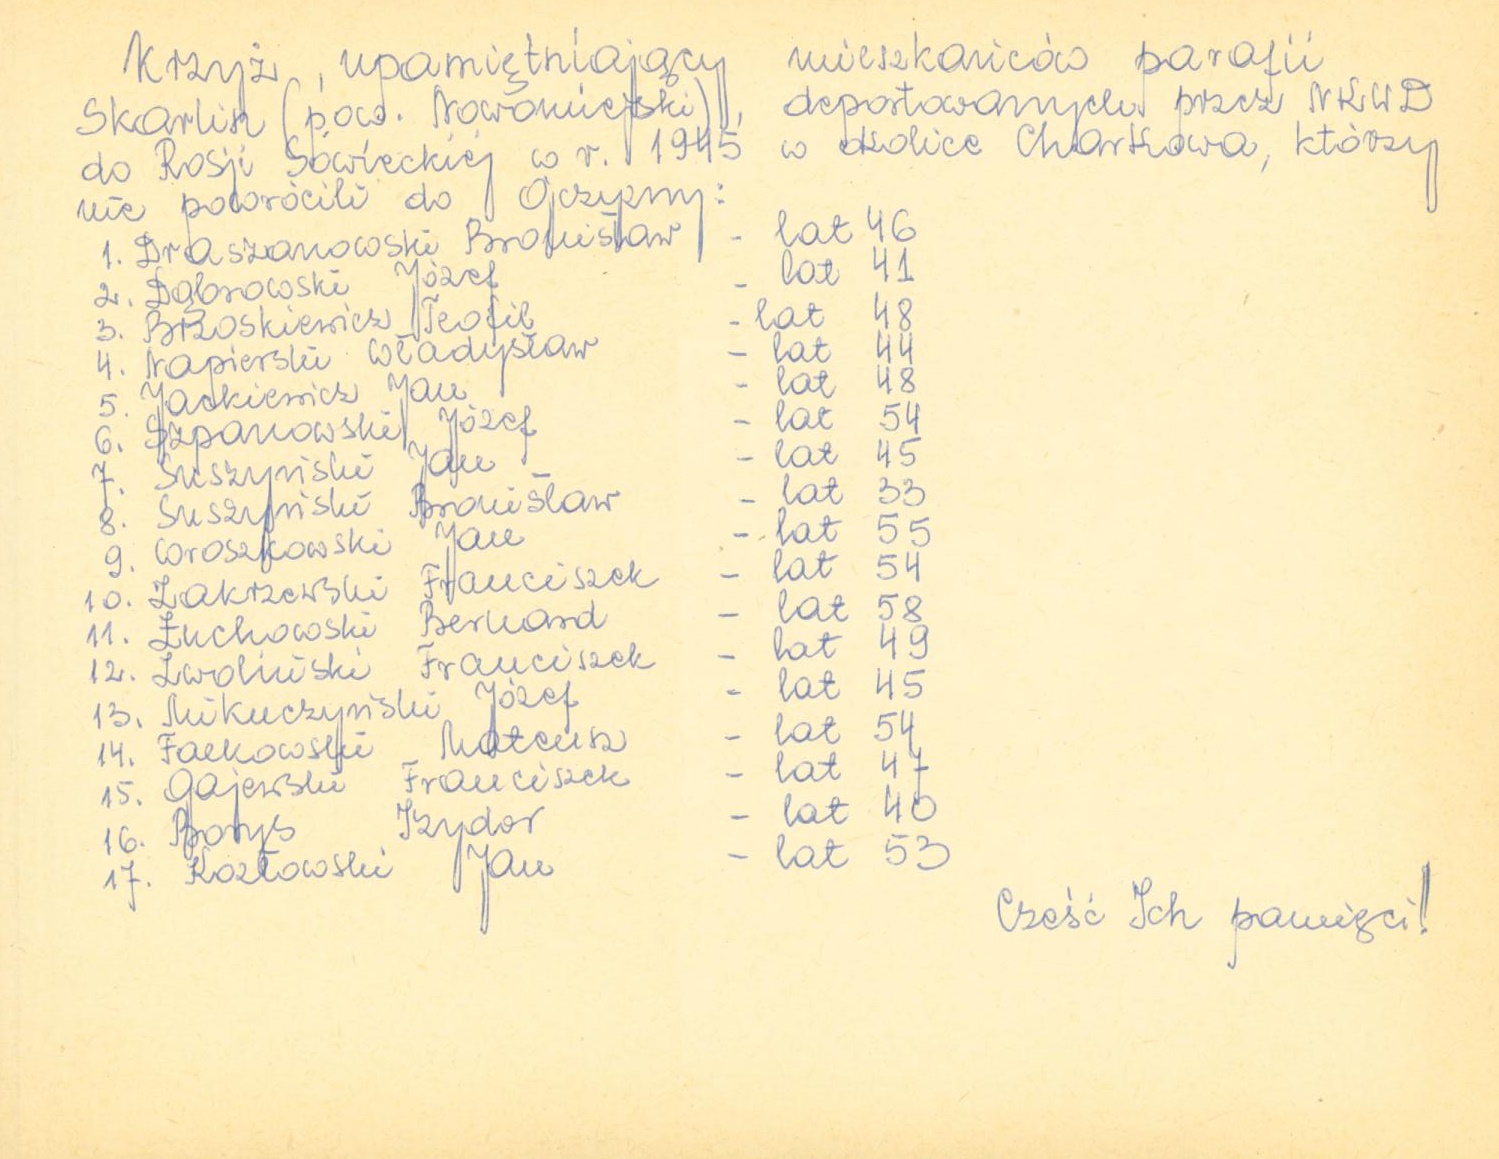 Krzyż, upamiętniający mieszkańców parafii
Skarlin (pow. Nowomiejski), deportowanych przez NKWD
do Rosji Sowieckiej w r. 1945 w okolice Charkowa, którzy
nie powrócili do Ojczyzny:
1. Draszanowski Bronisław - lat 46
2. Dąbrowski Józef - lat 41
3. Brzoskiewicz Teofil - lat 48
4. Napierski Władysław - lat 44
5. Jackiewicz Jan - lat 48
6. Szpanowski Józef - lat 54
7. Suszyński Jan - lat 45
8. Suszyński Bronisław - lat 33
9. Wroszkowski Jan - lat 55
10. Zakrzewski Franciszek - lat 54
11. Żuchowski Bernard - lat 58
12. Zwoliński Franciszek - lat 49
13. Mikuczyński Józef - lat 45
14. Fałkowski Mateusz - lat 54
15. Gajewski Franciszek - lat 47
16. Borys Izydor - lat 40
17. Kozłowski Jan - lat 53
Cześć Ich pamięci!